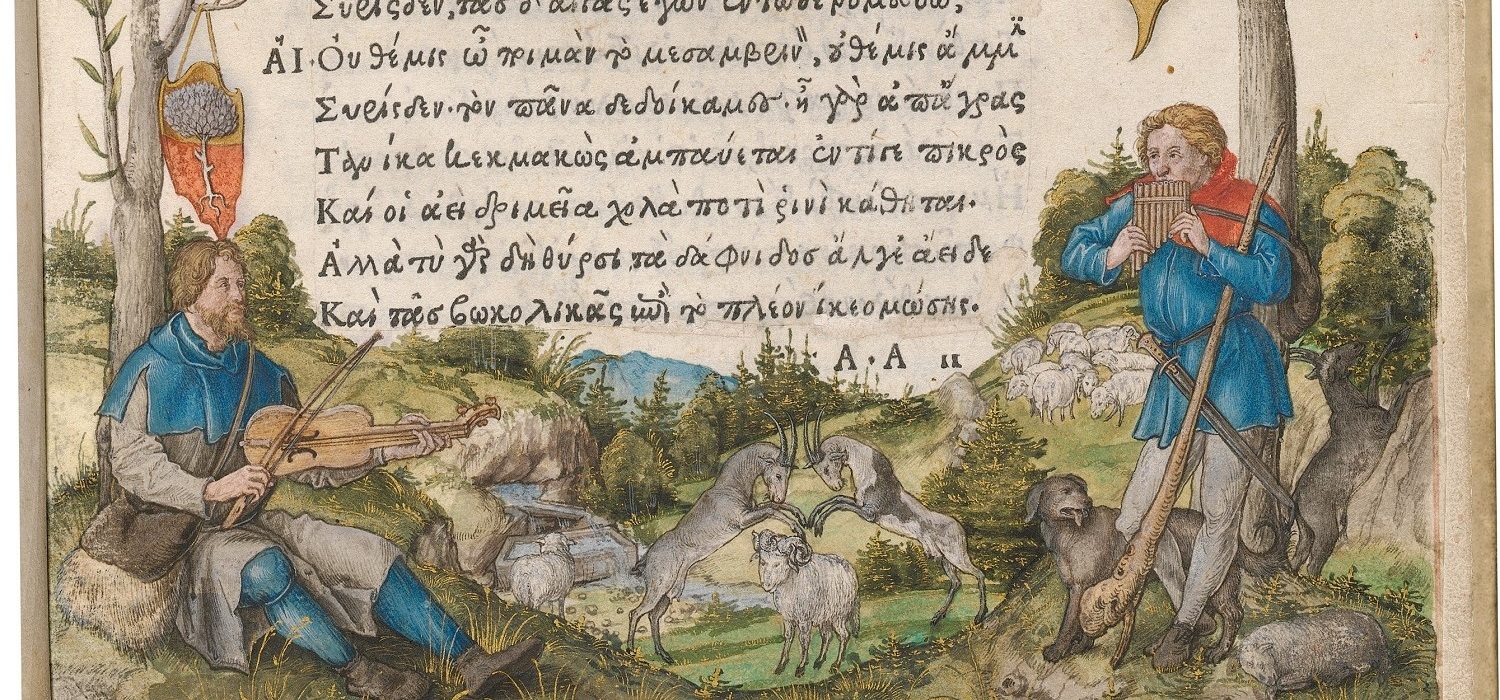 Συρίσδεν, τὰς δ' αἶγας ἐγὼν ἐν τῷδε νομευσῶ;
ΑΙ. Οὐ θέμις ὦ ποιμὰν τὸ μεσαμβρινὸν, οὐ θέμις ἄμμιν
Συρίσδεν. τὸν πᾶνα δεδοίκαμες. ἦ γὰρ ἀπ' ἄγρας
Τανίκα κεκμακὼς ἀμπαύεται ἐντί γε πικρὸς
Καί οἱ ἀεὶ δριμεῖα χολὰ ποτὶ ῥινὶ κάθηται.
Ἀλλὰ τὺ γὰρ δὴ θύρσι τὰ δάφνιδος ἄλγε' ἄειδε
Καὶ τᾶς βωκολικᾶς ἐπὶ τὸ πλέον ἵκεο μώσης.
A.A ii